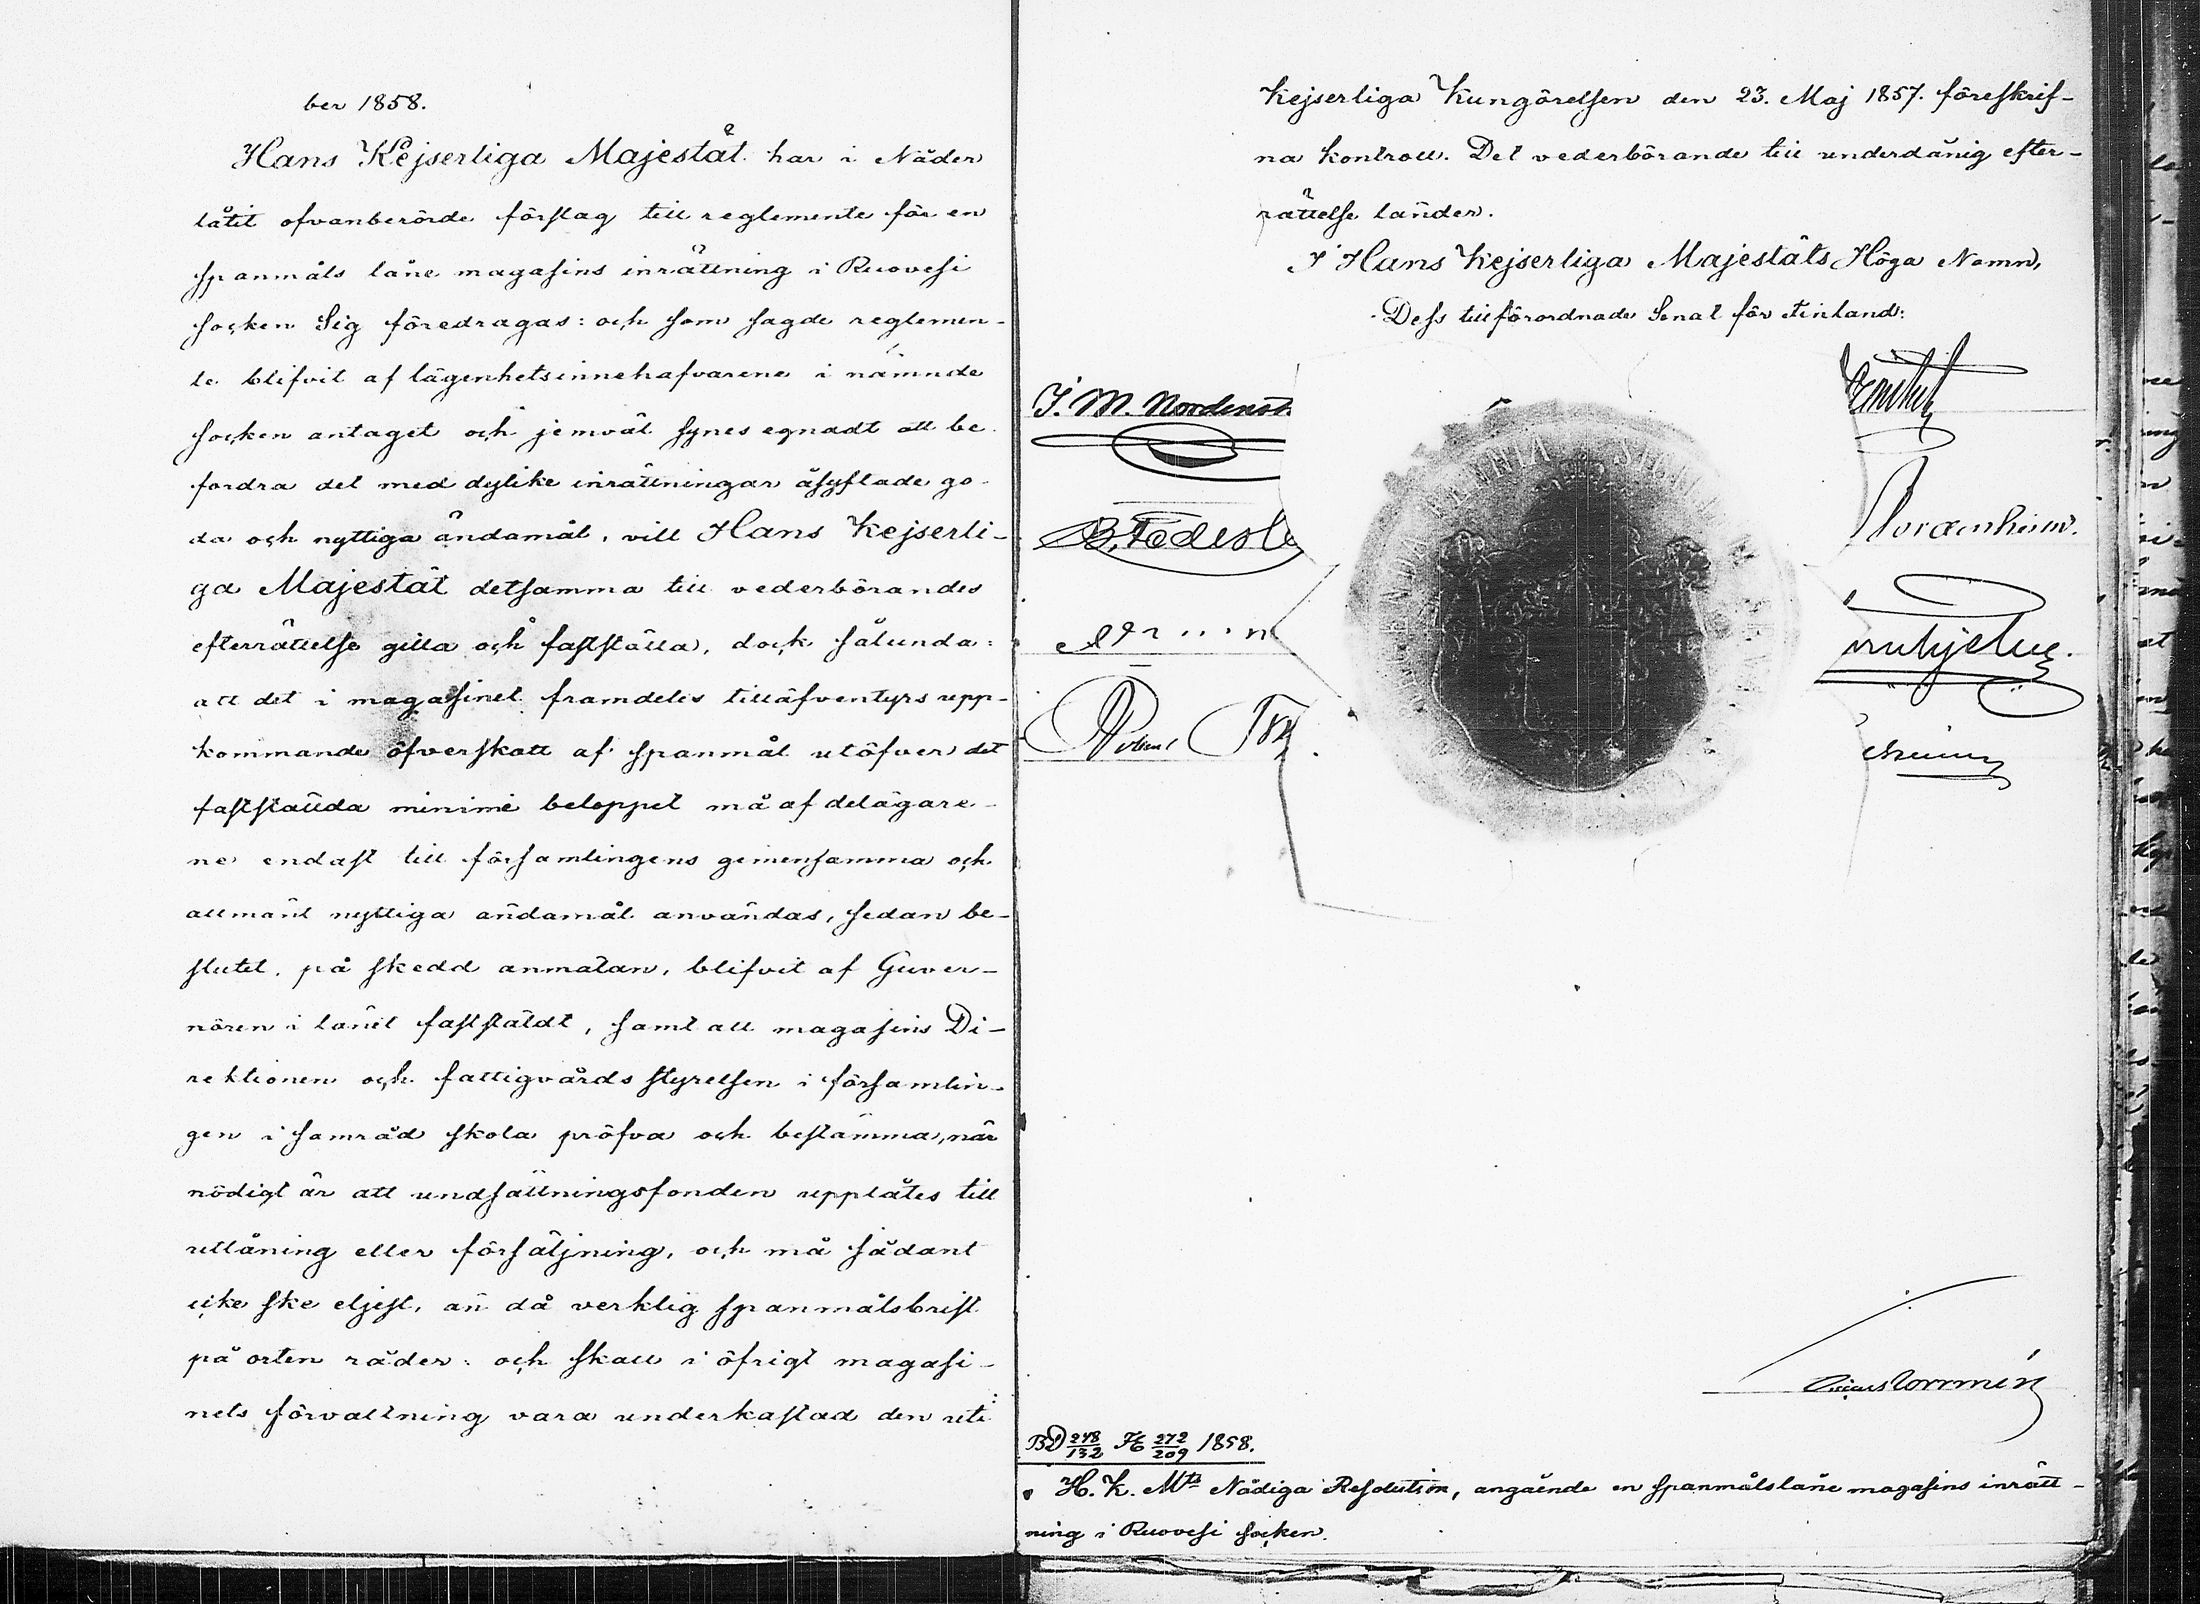 ber 1858.
Hans Kejserliga Majestät har i Nåder
låtit ofvanberörde förslag till reglemente för en
spanmåls låne magasins inrättning i Ruovesi
socken Sig föredragas: och som sagde reglemen-
te blifvit af lägenhetsinnehafvarene i nämnde
socken antaget och jemväl synes egnadt att be-
fordra det med dylike inrättningar åsyftade go-
da och nyttiga ändamål, vill Hans Kejserli-
ga Majestät detsamma till vederbörandes
efterrättelse gilla och fastställa, dock sålunda:
att det i magasinet framdeles tilläfventyrs upp-
kommande öfverskott af spanmål utöfver det
fastställda minimi beloppet må af delägare-
ne endast till församlingens gemensamma och
allmänt nyttiga ändamål användas, sedan be-
slutet, på skedd anmälan, blifvit af Guver-
nören i länet fastställdt, samt att magasins Di-
rektionen och fattigvårds styrelsen i församlin-
gen i samråd skola pröfva och bestämma, när
nödigt är att undsättningsfonden upplåtes till
utlåning eller försäljning, och må sådant
icke ske eljest, än då verklig spanmålsbrist
på orten råder: och skall i öfrigt magasi-
nets förvaltning vara underkastad den uti
Kejserliga Kungörelsen den 23. Maj 1857. föreskrif-
na kontroll. Det vederbörande till underdånig efter-
rättelse länder.
I Hans Kejserliga Majestäts Höga Namn,
Dess tillförordnade Senat för Finland:
J. M. Nordenst
B. Federle
Robert
BD 248/132 FE 272/209 1858.
H. K. Mts Nådiga Resolution, angående en spanmålslåne magasins inrätt-
ning i Ruovesi socken.